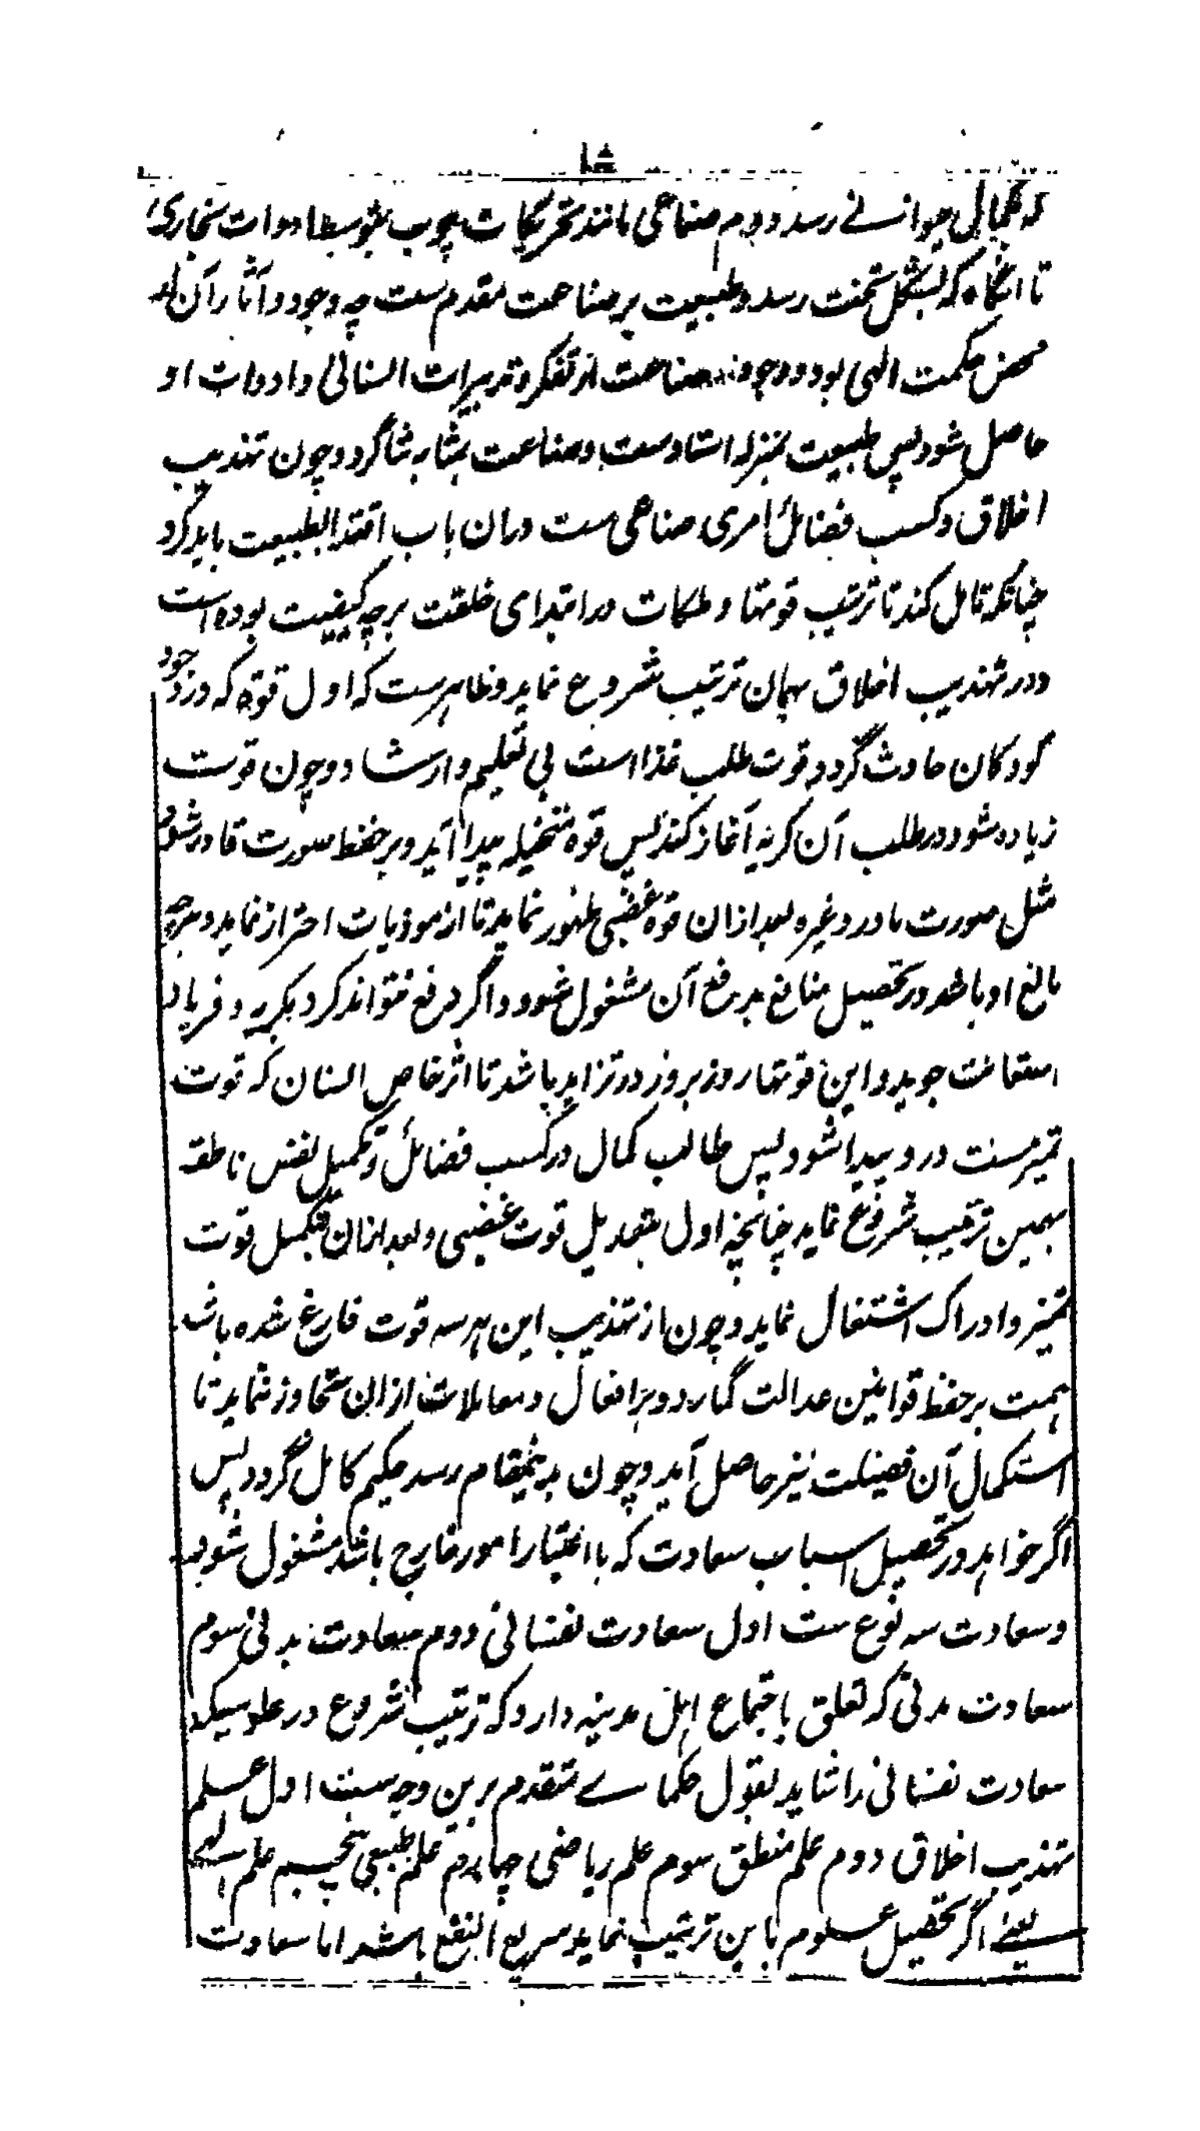 ۱۵
که بکمال حیوانے رسد دوم صناعی مانند تحریکات چوب بتوسط ادوات نجاری
تا انگاه که بشکل تخت رسد و طبیعت بر صناعت مقدم ست چه وجود و آثار آن از
محض حکمت الهی بود و وجود صناعت از تفکر و تدبیرات انسانی و ادوات او
حاصل شود پس طبیعت بمنزله استاد ست و صناعت بمثابه شاگرد و چون تهذیب
اخلاق و کسب فضائل امری صناعی ست دران باب اقتدا بطبیعت باید کرد
چنانکه تامل کند تا ترتیب قوتها و ملکات در ابتدای خلقت بر چه کیفیت بوده است
و در تهذیب اخلاق بهمان ترتیب شروع نماید و ظاهرست که اول قوة که در وجود
کودکان حادث گردد قوت طلب غذا است بی تعلیم و ارشاد و چون قوت
زیاده شود در طلب آن گریه آغاز کند پس قوه متخیله پیدا آید و بر حفظ صورت قادر شود
مثل صورت مادر و غیره بعد ازان قوه غضبی ظهور نماید تا از موذیات احتراز نماید و هرچه
مانع او باشد در تحصیل منافع بدفع آن مشغول شود و اگر دفع نتواند کرد بگریه و فریاد
استعانت جوید و این قوتها روز بروز در تزاید باشد تا اثر خاص انسان که قوت
تمیز ست در و پیدا شود پس طالب کمال در کسب فضائل و تکمیل نفس ناطقه
بهمین ترتیب شروع نماید چنانچه اول بتعدیل قوت غضبی و بعد ازان بتکمیل قوت
تمیز و ادراک اشتغال نماید و چون از تهذیب این هر سه قوت فارغ شده باشد
همت بر حفظ قوانین عدالت گمارد و در افعال و معاملات ازان تجاوز ننماید تا
استکمال آن فضیلت نیز حاصل آید و چون بدینمقام رسد حکیم کامل گردد پس
اگر خواهد در تحصیل اسباب سعادت که با اعتبار امور خارج باشد مشغول شود
و سعادت سه نوع ست اول سعادت نفسانی دوم سعادت بدنی سوم
سعادت مدنی که تعلق باجتماع اهل مدینه دارد که ترتیب شروع در علومیکه
سعادت نفسانی را شاید بقول حکماے متقدم برین وجه ست اول علم
تهذیب اخلاق دوم علم منطق سوم علم ریاضی چهارم علم طبیعی پنجم علم الهے
یعنے اگر تحصیل علوم باین ترتیب نماید سریع النفع باشد اما سعادت